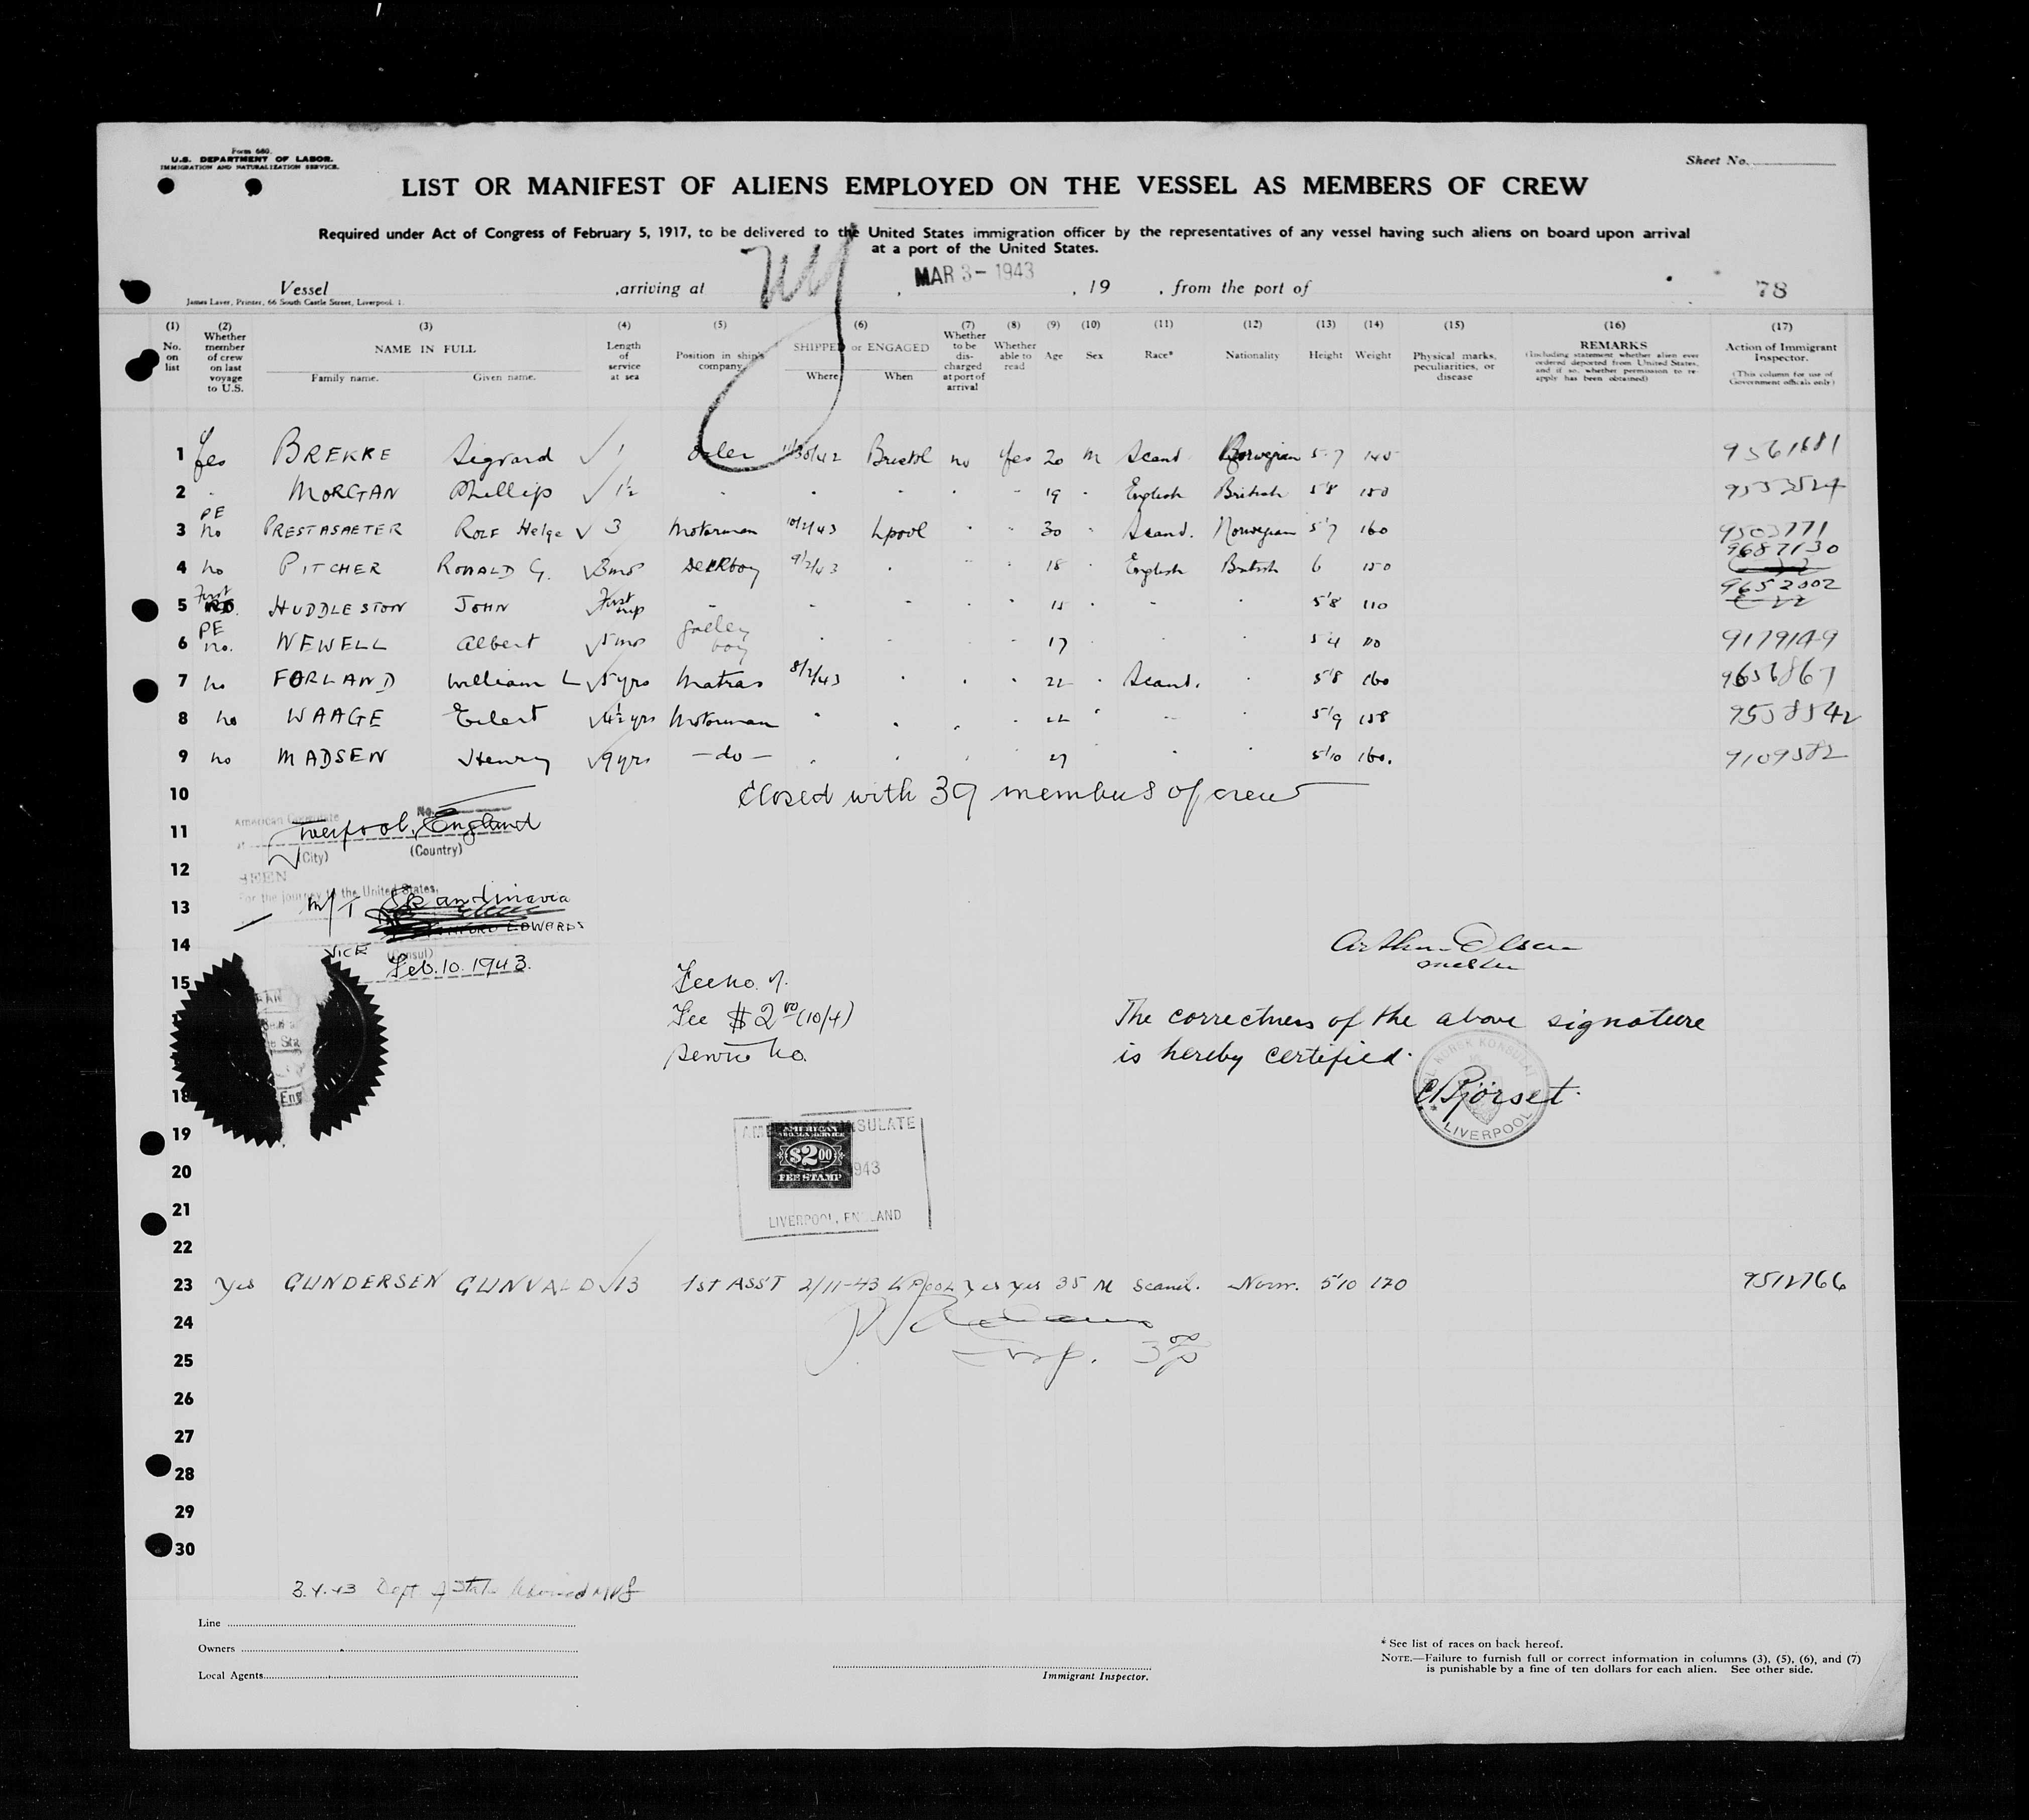 Form 680.
U.S. DEPARTMENT OF LABOR.
IMMIGRATION AND NATURALIZATION SERVICE.
Sheet No.
LIST OR MANIFEST OF ALIENS EMPLOYED ON THE VESSEL AS MEMBERS OF CREW
Required under Act of Congress of February 5, 1917, to be delivered to the United States immigration officer by the representatives of any vessel having such aliens on board upon arrival
at a port of the United States.
Vessel , arriving at NY , MAR 3 - 1943 , 19 , from the port of 78
James Laver, Printer, 66 South Castle Street, Liverpool. 1.
(1) No. on list
(2) Whether member of crew on last voyage to U.S.
(3) NAME IN FULL
Family name. Given name.
(4) Length of service at sea
(5) Position in ship's company
(6) SHIPPED or ENGAGED
Where When
(7) Whether to be discharged at port of arrival
(8) Whether able to read
(9) Age
(10) Sex
(11) Race*
(12) Nationality
(13) Height
(14) Weight
(15) Physical marks, peculiarities, or disease
(16) REMARKS
(Including statement whether alien ever ordered deported from United States, and if so, whether permission to re-apply has been obtained)
(17) Action of Immigrant Inspector.
(This column for use of Government officials only)
1 yes BREKKE Sigvard √ 1 oiler 11/30/42 Bristol no yes 20 M Scand Norwegian 5-7 145 9561681
2 " MORGAN Phillip √ 1½ " " " " " 19 " English British 5'8 150 9553524
3 PE no PRESTASAETER ROLF Helge √ 3 Motorman 10/2/43 Lpool " " 30 " Scand. Norwegian 5'7 160 9503771
4 no PITCHER RONALD G. √ 3mos DECKBOY 9/2/43 " " " 18 " English British 6 150 9687130
5 First HUDDLESTON JOHN √ First trip " " " " " 18 " " " 5'8 110 9652002
6 PE no. NEWELL Albert √ 5mos galley boy " " " " 17 " " " 5'4 110 9179149
7 no FORLAND William L √ 5yrs Matros 8/2/43 " " " 22 " Scand. " 5'8 160 9656867
8 no WAAGE Eilert √ 4½ yrs Motorman " " " " 22 " " " 5'9 158 9558542
9 no MADSEN Henry √ 9yrs — do — " " " 27 " " 5'10 160. 9109582
10 Closed with 39 members of crew
American Consulate No.
11 at Liverpool, England
(City) (Country)
12
SEEN
For the journey to the United States,
13 M/T Skandinavia
EDWARDS
14
VICE (Consul)
Feb. 10. 1943.
Arthur Olsen
master
15
Fee no.
Fee $2.00 (10/4)
Service No.
The correctness of the above signature
is hereby certified.
18
KGL NORSK KONSULAT
LIVERPOOL
Bjørset.
19
AMERICAN CONSULATE
AMERICAN
FOREIGN SERVICE
$2.00
FEE STAMP
943
20
LIVERPOOL, ENGLAND
21
22
23 yes GUNDERSEN GUNVALD √ 13 1st ASST 2/11-43 LPOOL yes yes 35 M Scand. Norw. 5'10 170 9512766
24
25 Insp.
26
27
28
29
30
3.4.43 Dept of State
Line
Owners
Local Agents
Immigrant Inspector.
* See list of races on back hereof.
NOTE.—Failure to furnish full or correct information in columns (3), (5), (6), and (7)
is punishable by a fine of ten dollars for each alien. See other side.